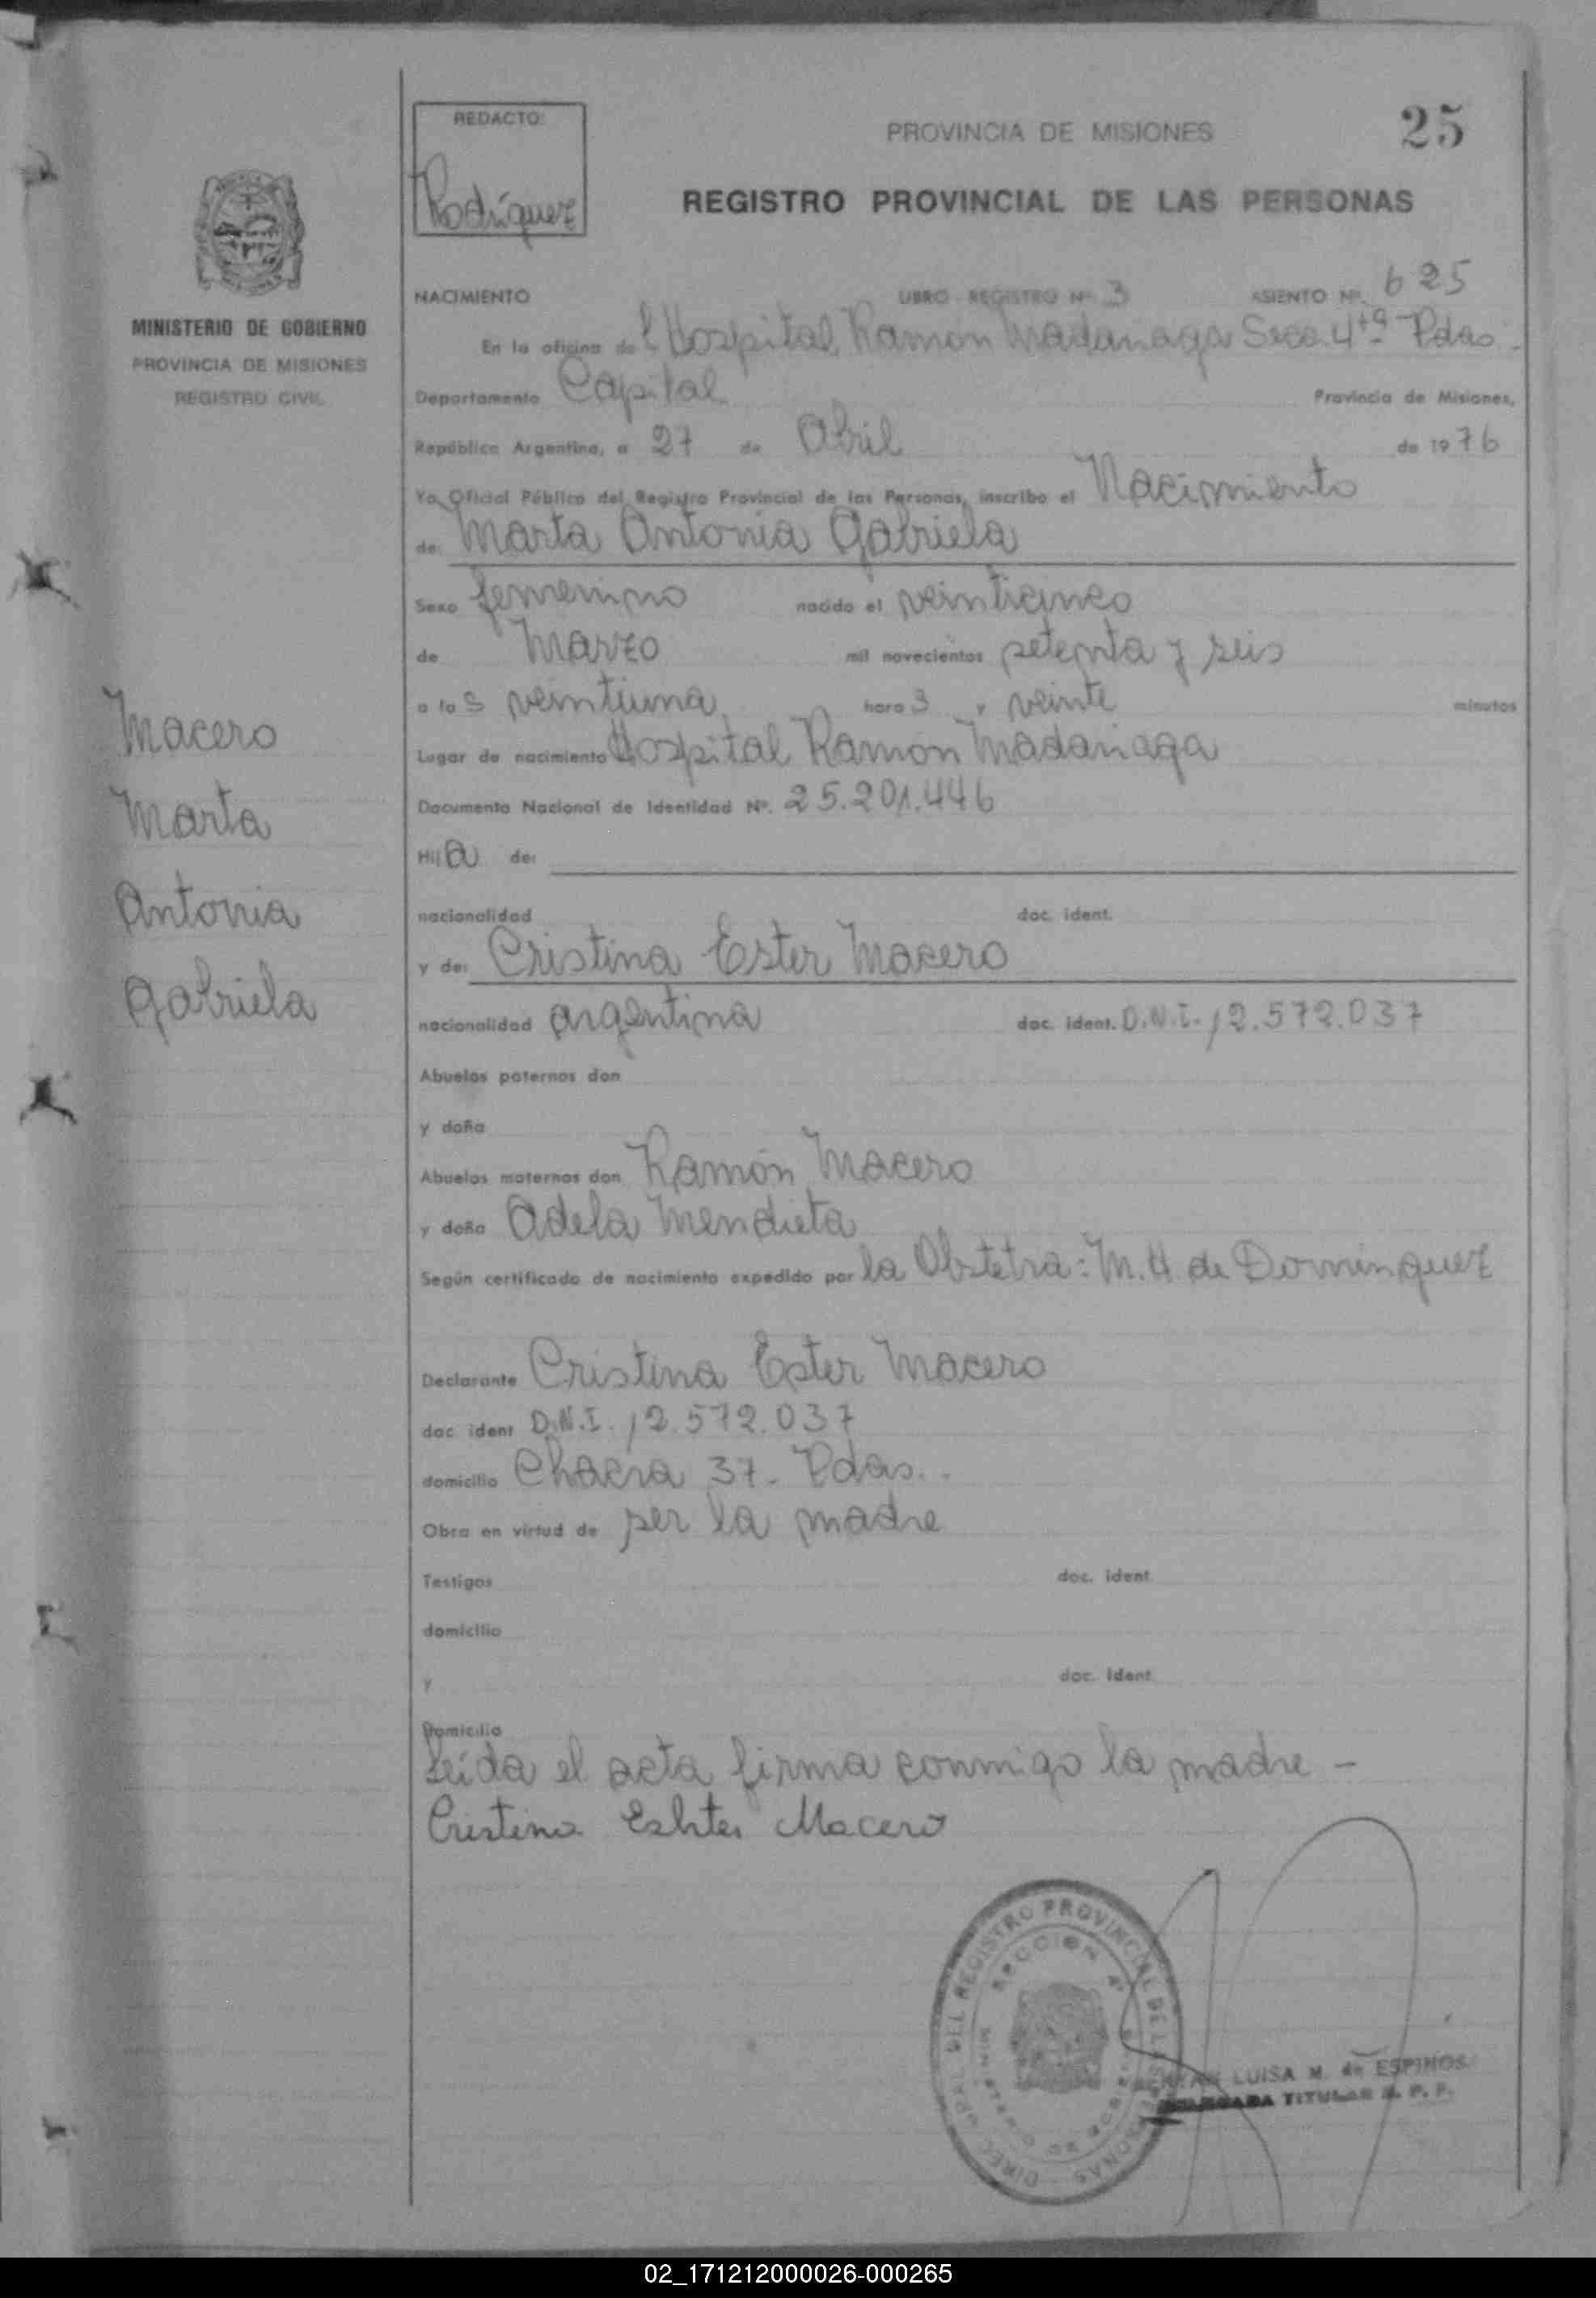 25
REDACTO:
Rodríguez
PROVINCIA DE MISIONES
REGISTRO PROVINCIAL DE LAS PERSONAS
MINISTERIO DE GOBIERNO
PROVINCIA DE MISIONES
REGISTRO CIVIL
NACIMIENTO LIBRO REGISTRO Nº 3 ASIENTO Nº 625
En la oficina del Hospital Ramón Madariaga Secc. 4ta Pdas.
Departamento Capital Provincia de Misiones,
República Argentina, a 27 de Abril de 1976
Yo, Oficial Público del Registro Provincial de las Personas, inscribo el Nacimiento
de: Marta Antonia Gabriela
Sexo femenino nacido el veinticinco
de Marzo mil novecientos setenta y seis
a las veintiuna horas y veinte minutos
Lugar de nacimiento Hospital Ramón Madariaga
Documento Nacional de Identidad Nº. 25.201.446
Hija de:
nacionalidad doc. ident.
y de: Cristina Ester Macero
nacionalidad argentina doc. ident. D.N.I. 12.572.037
Abuelos paternos don
y doña
Abuelos maternos don Ramón Macero
y doña Adela Mendieta
Según certificado de nacimiento expedido por la Obstetra: M.H. de Dominguez
Declarante Cristina Ester Macero
doc ident D.N.I. 12.572.037
domicilio Chacra 37- Pdas.
Obra en virtud de ser la madre
Testigos doc. ident.
domicilio
y doc. ident.
Domicilio
Leída el acta firma conmigo la madre -
Cristina Eshter Macero
Macero
Marta
Antonia
Gabriela
DIREC. GRAL. DEL REGISTRO PROVINCIAL DE LAS PERSONAS
SECCION 4ª
MINISTERIO DE GOBIERNO
LUISA M. de ESPINOS
DELEGADA TITULAR R. P. P.
02_171212000026-000265